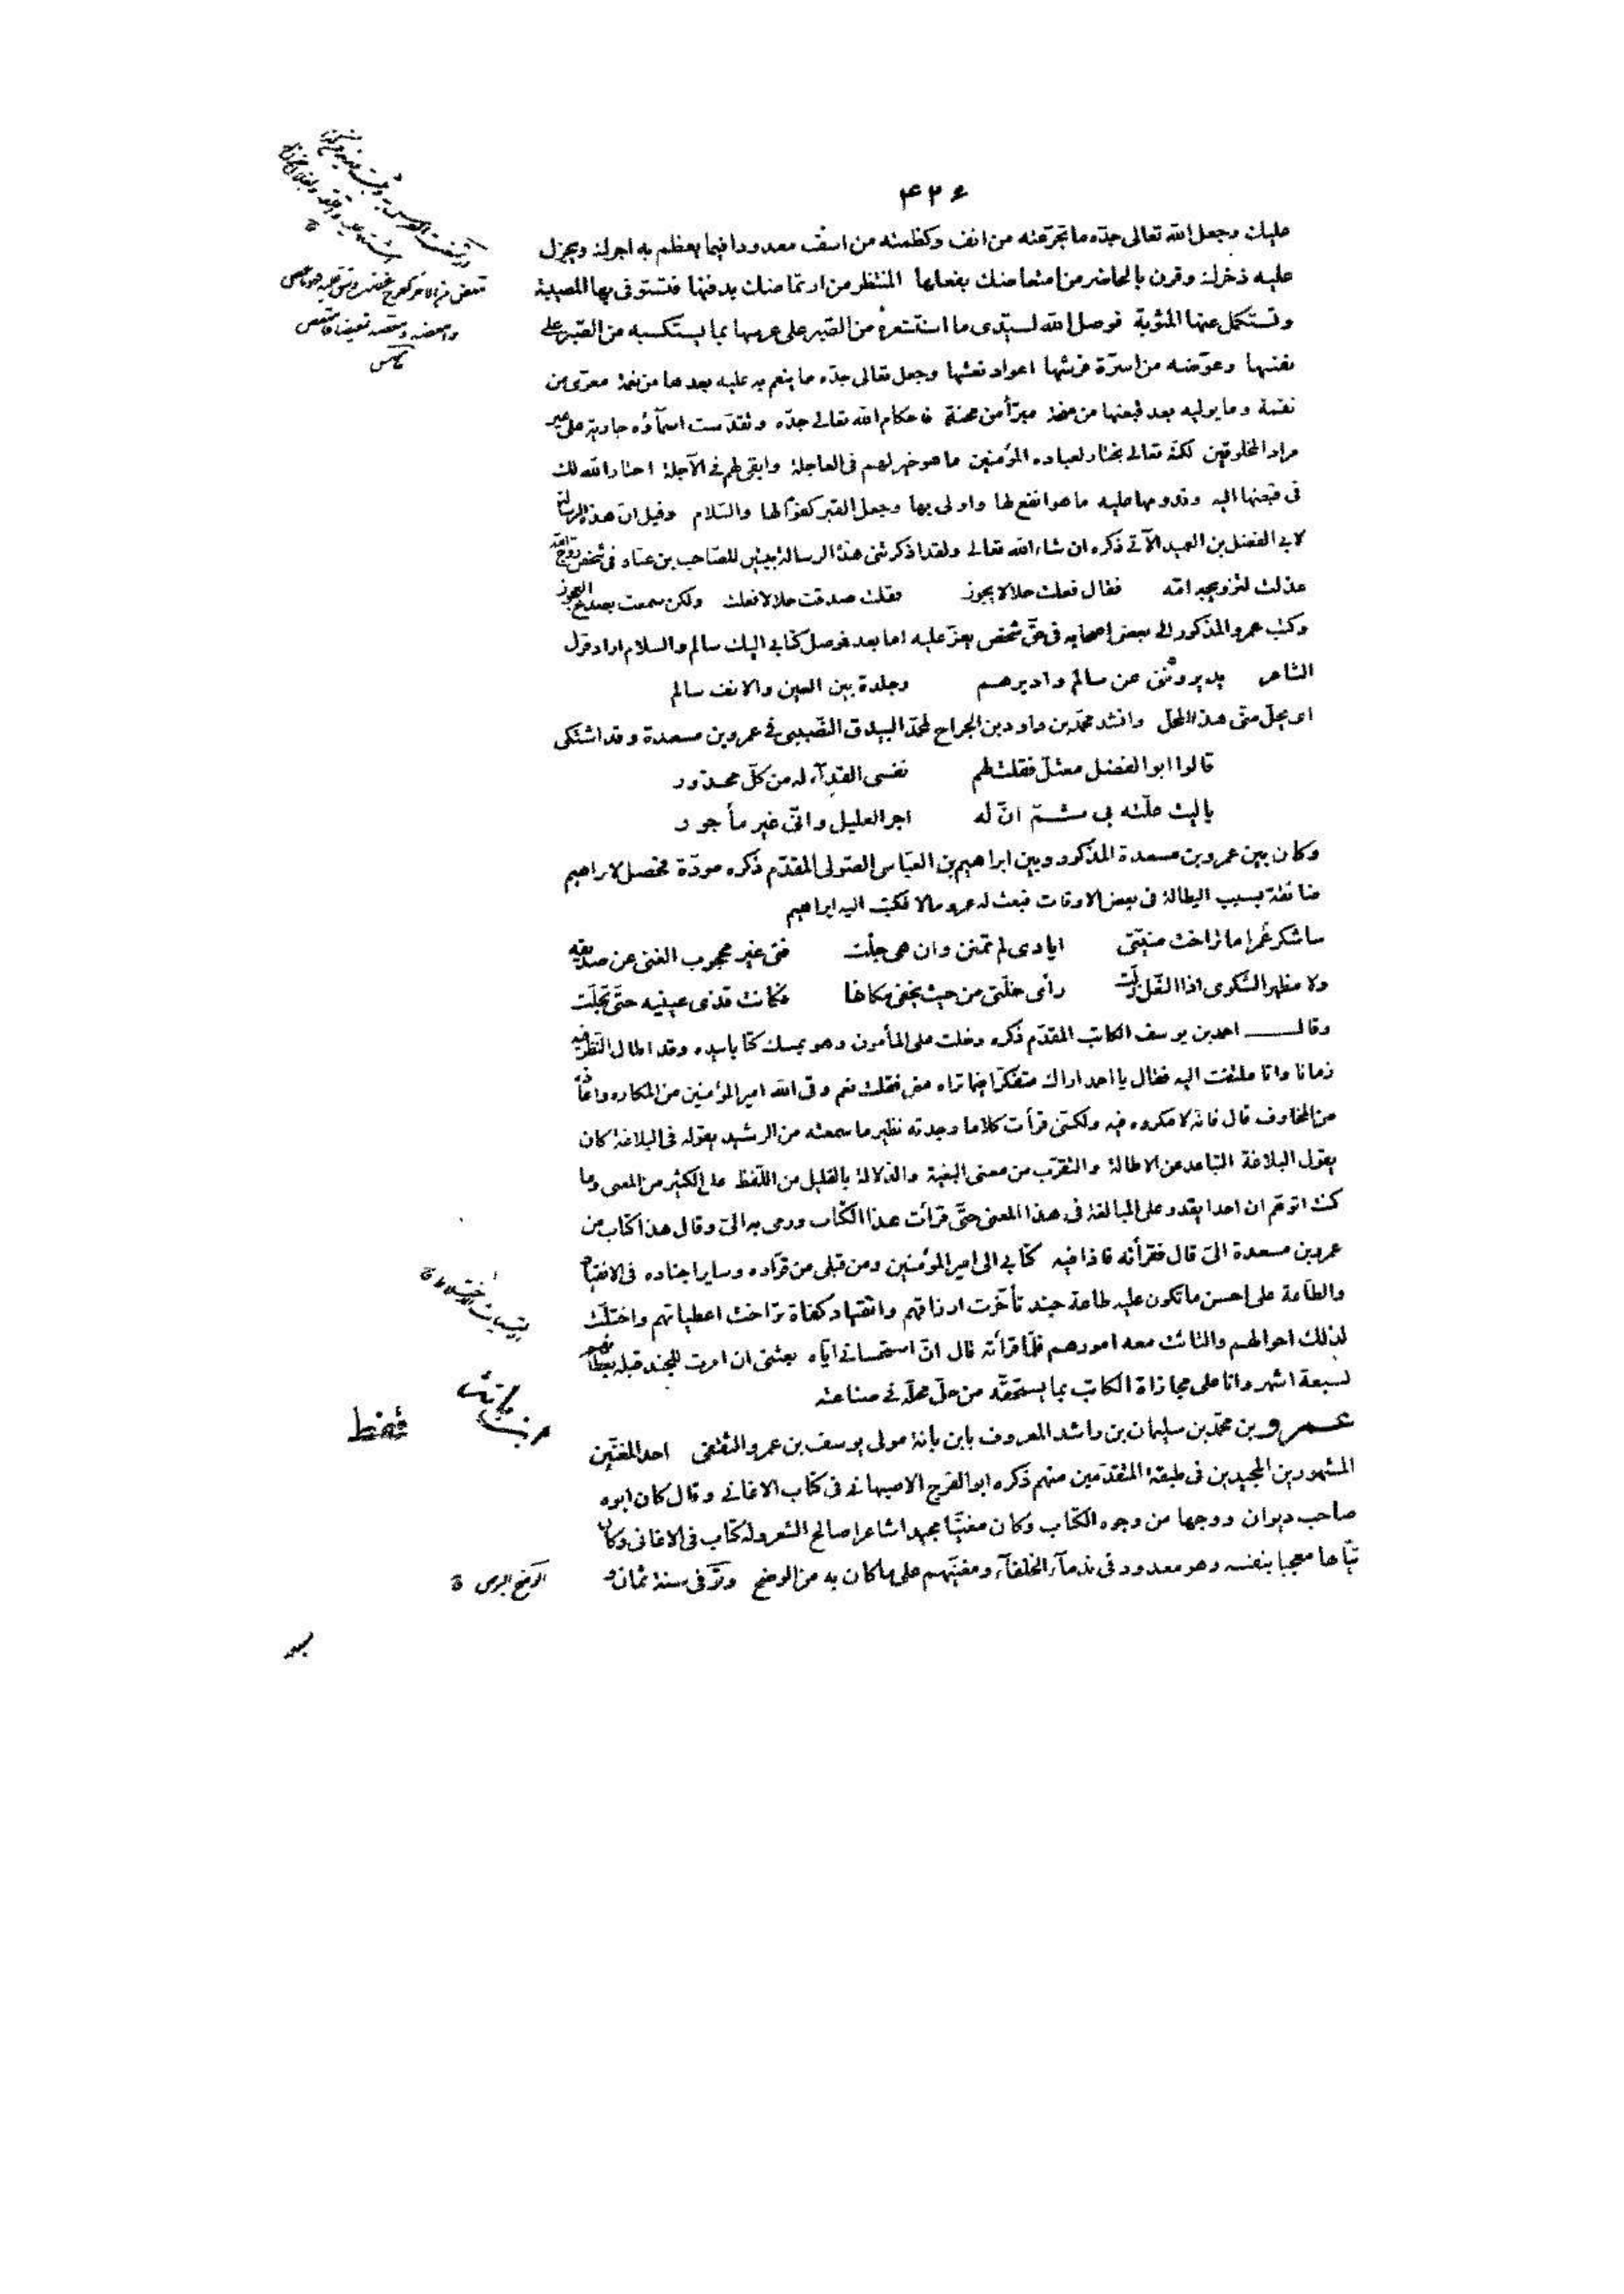 ۴۲۶
عليك وجعل الله تعالى جدّه ما تجرّعته من انف وكظمته من اسف معدودا فيما يعظم به اجرك ويجزل
عليه ذخرك وقرن بالحاضر من امتعاضك بفعلها المنتظر من ارتماضك بدفنها فتستوفى بها المصيبة
وتستكمل عنها المثوبة فوصل الله لسيّدى ما استشعره من الصّبر على عرسها بما يستكسبه من الصّبر على
نفسها وعوّضه من اسرّة فرشها اعواد نعشها وجعل تعالى جدّه ما ينعم به عليه بعدها من نعمة معرّى من
نقمة وما يوليه بعد قبضها من منحة مبرّأ من محنة فاحكام الله تعالى جدّه وتقدّست اسمآؤه جارية على غير
مراد المخلوقين لكنّه تعالى يختار لعباده المؤمنين ما هو خير لهم فى العاجلة وابقى لهم فى الآجلة اختار الله لك
فى قبضها اليه وقدومها عليه ما هو انفع لها واولى بها وجعل القبر كفؤا لها والسّلام وقيل انّ هذه الرسالة
لابى الفضل بن العميد الآتى ذكره ان شاء الله تعالى ولقد اذكرتنى هذه الرسالة بيتين للصّاحب بن عبّاد فى شخص زوّج امّه
عذلت لتزويجه امّه فقال فعلت حلالا يجوز فقلت صدقت حلالا فعلت ولكن سمحت بصدع العجوز
وكتب عمرو المذكور الى بعض اصحابه فى حقّ شخص يعزّ عليه اما بعد فوصل كتابى اليك سالم والسلام اراد قول
الشاعر يديروننى عن سالم واديرهم وجلدة بين العين والانف سالم
اى يحلّ منّى هذا المحلّ وانشد محمّد بن داود بن الجراح لمحمّد البيدق النّصيبى فى عمرو بن مسعدة وقد اشتكى
قالوا ابو الفضل معتلّ فقلت لهم نفسى الفدآء له من كلّ محذور
يا ليت علّته بى ثمّ انّ له اجر العليل وانّى غير مأجور
وكان بين عمرو بن مسعدة المذكور وبين ابراهيم بن العبّاس الصّولى المقدّم ذكره مودّة فحصل لابراهيم
ضائقة بسبب البطالة فى بعض الاوقات فبعث له عمرو مالا فكتب اليه ابراهيم
ساشكر عمرا ما تراخت منيّتى ايادى لم تمنن وان هى جلّت فتى غير محجوب الغنى عن صديقه
ولا مظهر الشكوى اذا النّعل زلّت رأى خلّتى من حيث يخفى مكانها فكانت قذى عينيه حتّى تجلّت
وقال احمد بن يوسف الكاتب المقدّم ذكره دخلت على المأمون وهو يمسك كتابا بيده وقد اطال النّظر فيه
زمانا وانا ملتفت اليه فقال يا احمد اراك متفكّرا فيما تراه منى فقلت نعم وقى الله امير المؤمنين من المكاره واعاذه
من المخاوف قال فانّه لا مكروه فيه ولكنّى قرأت كلاما وجدته نظير ما سمعته من الرشيد يقوله فى البلاغة كان
يقول البلاغة التباعد عن الاطالة والتقرّب من معنى البغية والدلالة بالقليل من اللّفظ على الكثير من المعنى وما
كنت اتوهّم ان احدا يقدر على المبالغة فى هذا المعنى حتّى قرأت هذا الكتاب ورمى به الىّ وقال هذا كتاب من
عمرو بن مسعدة الىّ قال فقرأته فاذا فيه كتابى الى امير المؤمنين ومن قبلى من قوّاده وساير اجناده فى الانقياد
والطّاعة على احسن ما تكون عليه طاعة جند تأخّرت ارزاقهم وانقياد كفاة تراخت اعطياتهم واختلّت
لذلك احوالهم والتاثت معه امورهم فلمّا قرأته قال انّ استحسانى ايّاه بعثنى ان امرت للجند قبله بعطائهم
لسبعة اشهر وانا على مجازاة الكاتب بما يستحقّه من حلّ محلّه فى صناعته
عمرو بن محمّد بن سليمان بن راشد المعروف بابن بانة مولى يوسف بن عمرو الثقفى احد المغنّين
المشهورين المجيدين فى طبقة المتقدّمين منهم ذكره ابو الفرج الاصبهانى فى كتاب الاغانى وقال كان ابوه
صاحب ديوان ووجها من وجوه الكتّاب وكان مغنيّا مجيدا شاعرا صالح الشعر وله كتاب فى الاغانى وكان
تيّاها معجبا بنفسه وهو معدود فى ندمآء الخلفآء ومغنّيهم على ما كان به من الوضح وتوفى سنة ثمان و
الوضح البرص